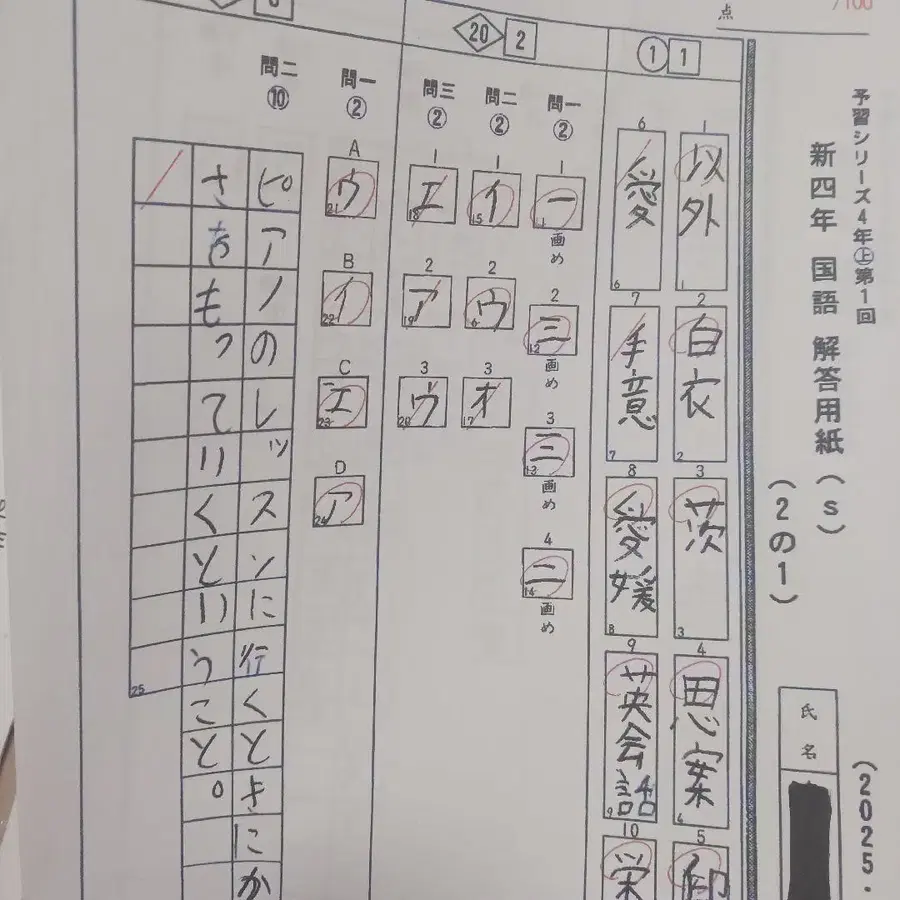 予習シリーズ4年㊤第1回
新四年 国語 解答用紙(S)
(2の1)
(2025.
氏名
点
/100
① 1
1 以外
2 白衣
3 茨
4 思案
5
6 愛
7 手意
8 愛媛
9 英会話
10 栄
⑳ 2
問一 ②
1 一 画め
2 三 画め
3 三 画め
4 二 画め
問二 ②
1 イ
2 ウ
3 オ
問三 ②
1 エ
2 ア
3 ウ
問一 ②
A ウ
B イ
C エ
D ア
問二 ⑩
ピアノのレッスンに行くときにか
さをもっていくということ。